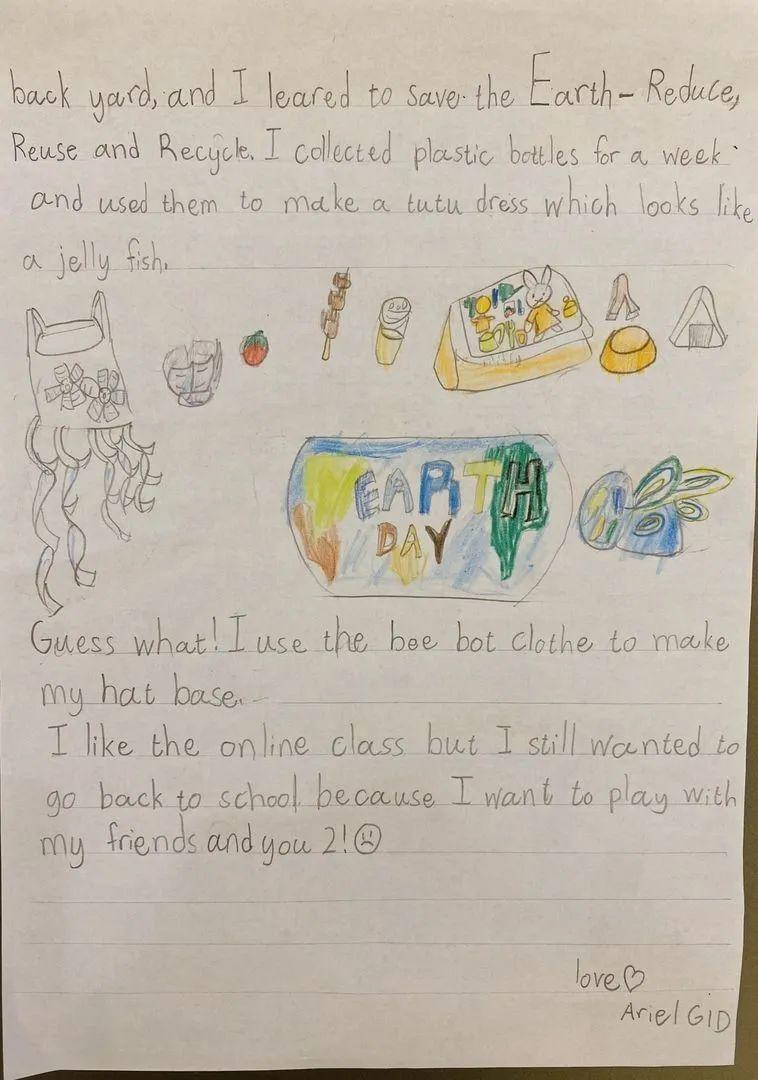 back yard, and I leared to save the Earth- Reduce,
Reuse and Recycle. I collected plastic bottles for a week
and used them to make a tutu dress which looks like
a jelly fish.
EARTH
DAY
Guess what! I use the bee bot clothe to make
my hat base.
I like the online class but I still wanted to
go back to school because I want to play with
my friends and you 2!☹
love♡
Ariel G1D